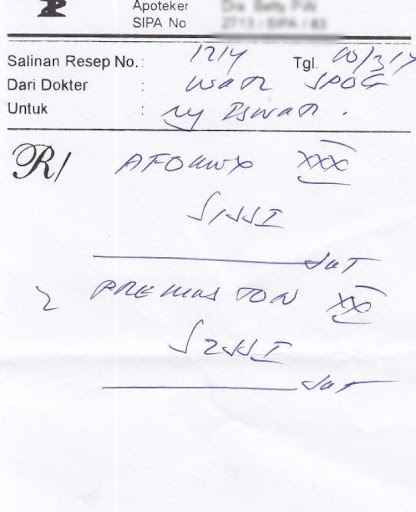 Apoteker
SIPA No 2713 / SIPA / 83
Salinan Resep No. : 1214 Tgl. 10/3 14
Dari Dokter : Wati SPOG
Untuk : Ny Iswati.
R/ AFOLAVX XXX
S1ddI
det
PREMASTON XX
S2ddI
det